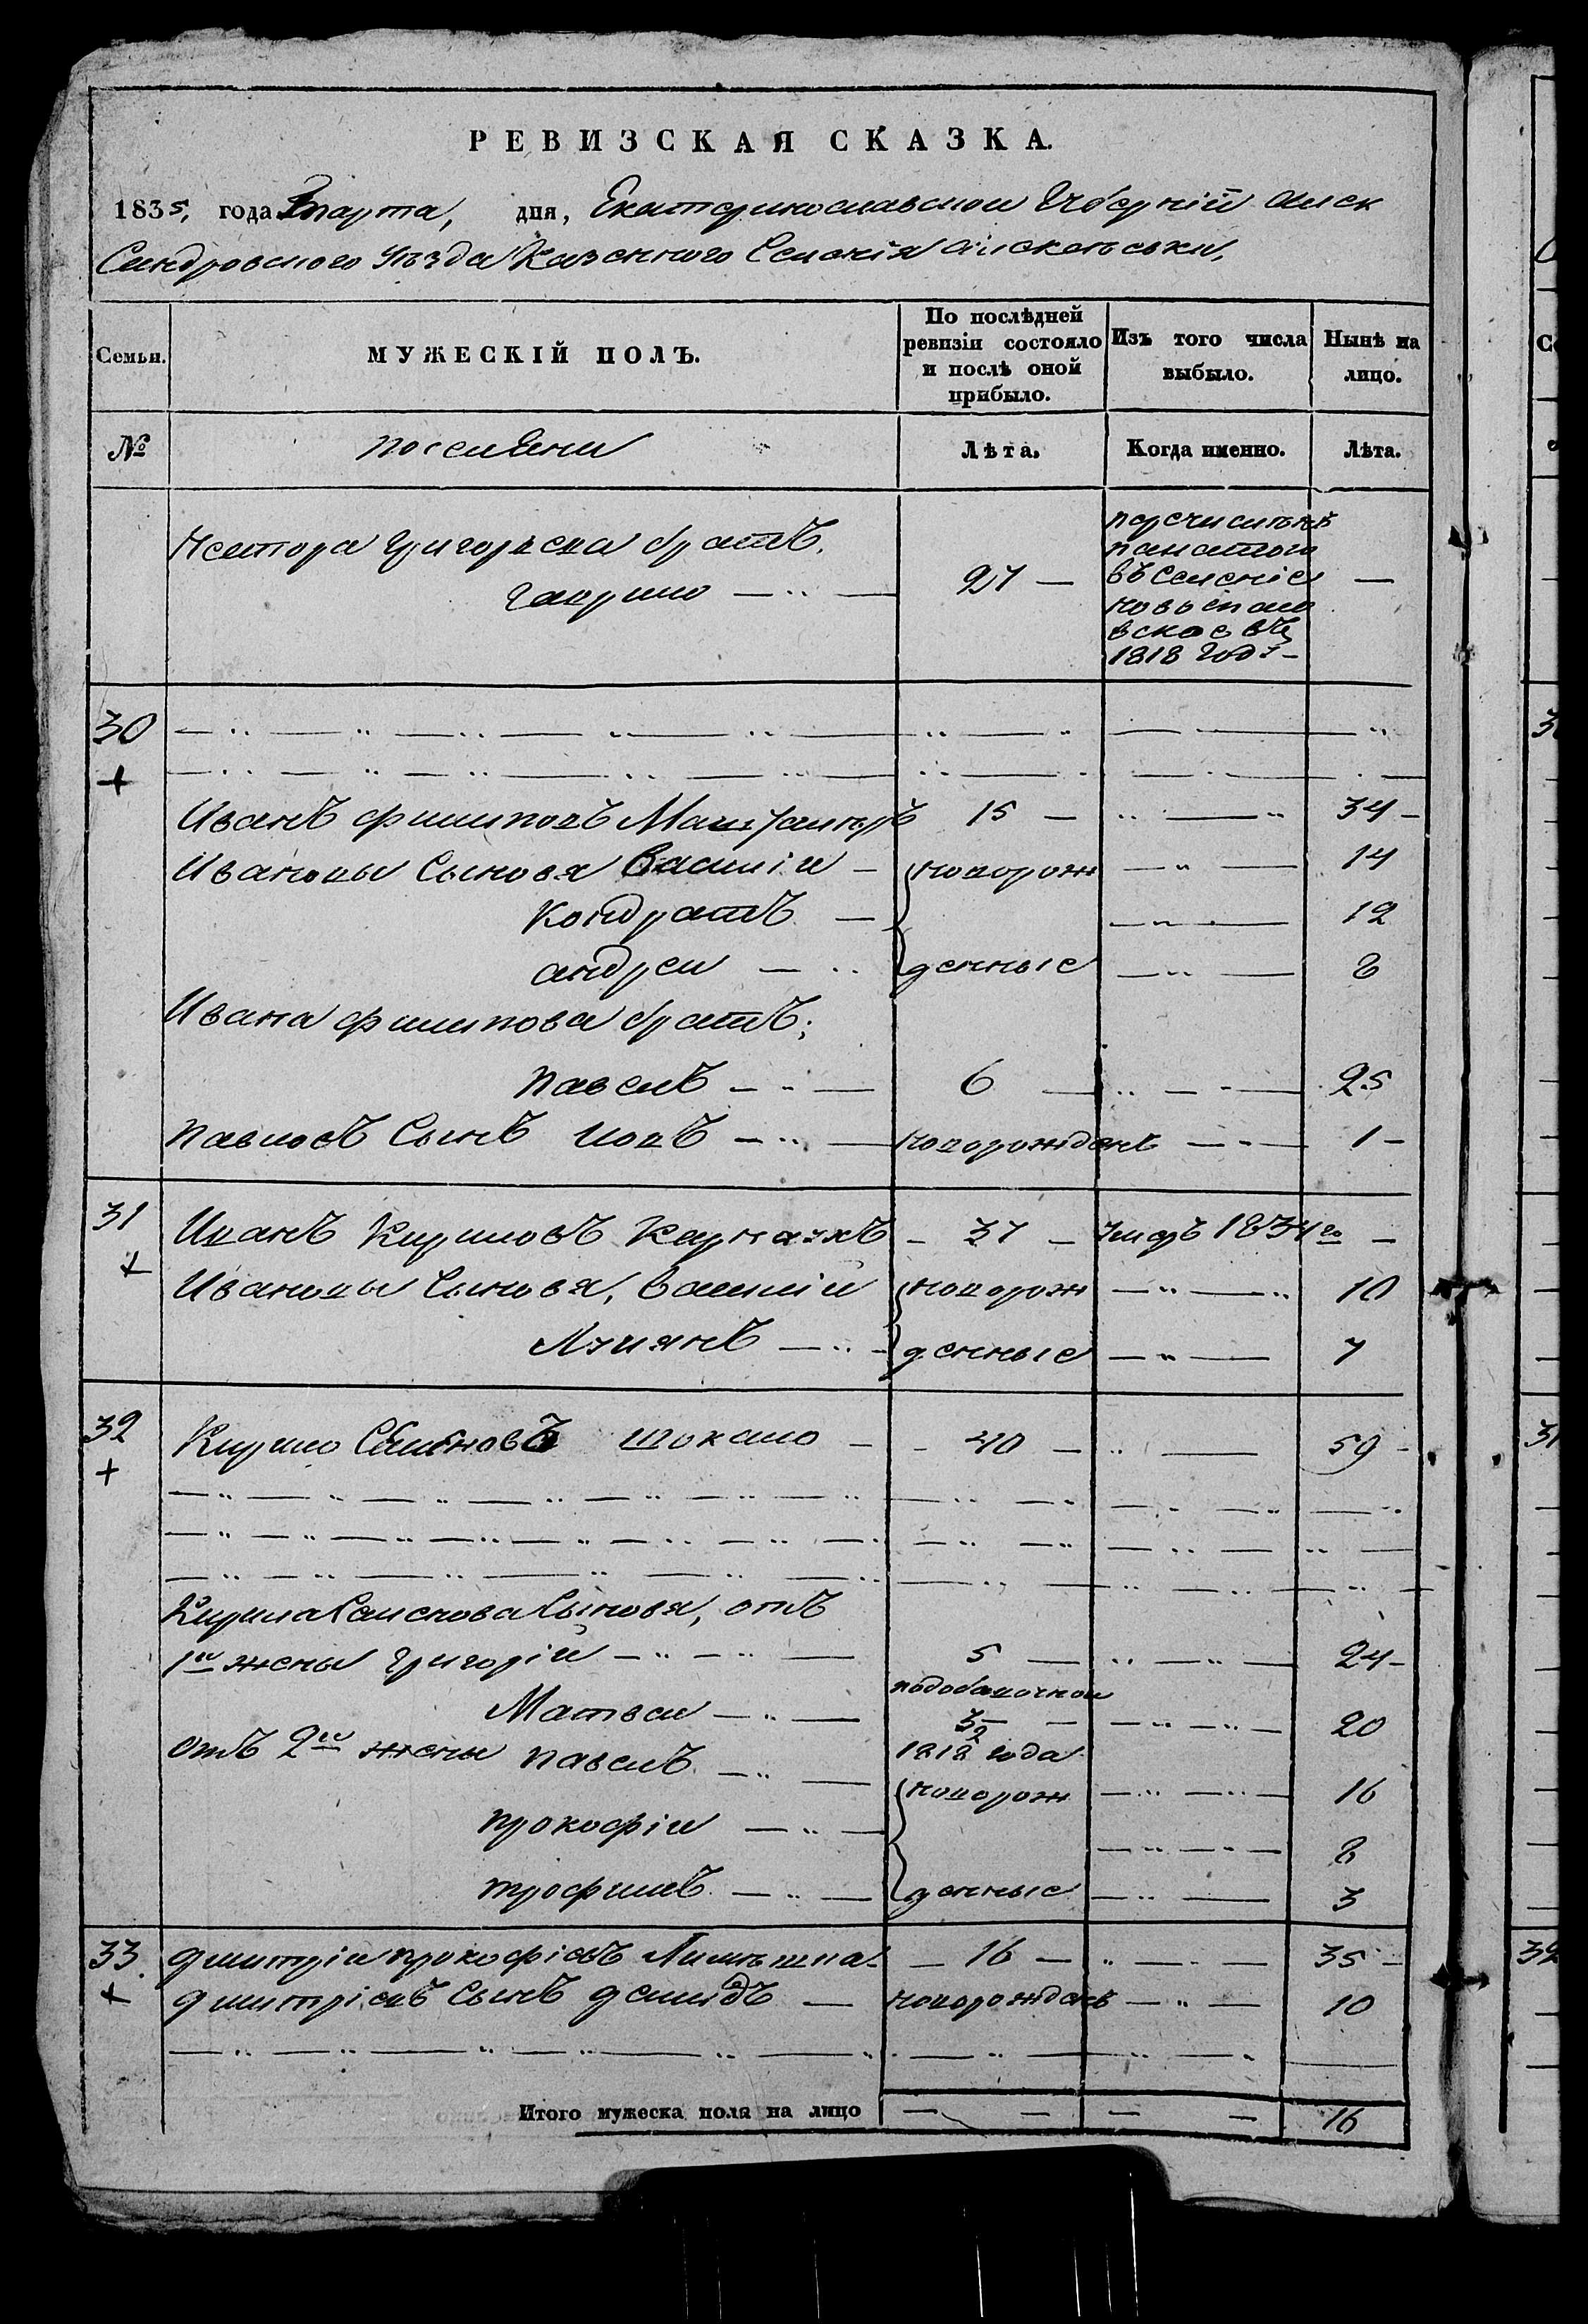 РЕВИЗСКАЯ СКАЗКА.
1835, года Марта, дня, Екатеринославской Губерніи Алек
сандровского уѣзда Казенного Селенія
Семьи. МУЖЕСКІЙ ПОЛЪ. По послѣдней ревизіи состояло и послѣ оной прибыло. Изъ того числа выбыло. Нынѣ на лицо.
№ поселяни Лѣта. Когда именно. Лѣта.
Нестора Григорьева братъ,
Гаврило 27 — перечисленъ
въ селеніе
вское въ
1818 году —
30
Иванъ Филиповъ 15 — 34 —
Ивановы Сыновя Василіи — новорож 14
Кондратъ — 12
андреи — денные 8
Ивана Филипова братъ;
павелъ — 6 — 25
павловъ Сынъ иовъ — новорожденъ — 1 —
31 Иванъ Кириловъ — 37 — умеръ 1834го —
Ивановы Сыновя, Василіи новорож 10
Лукянъ — денные 7
32 Кирило Семеновъ шокало — 40 — 59
Кирила Семенова Сыновя, отъ
1й жены григоріи — 5 — 24 —
Матвеи — 20
отъ 2й жены павелъ — 1818 года
новорож 16
прокофіи — 8
трофимъ — денные 3
33. дмитріи прокофіевъ — 16 — 35 —
дмитріевъ Сынъ демидъ — новорожденъ — 10
Итого мужеска пола на лицо — — — — 16